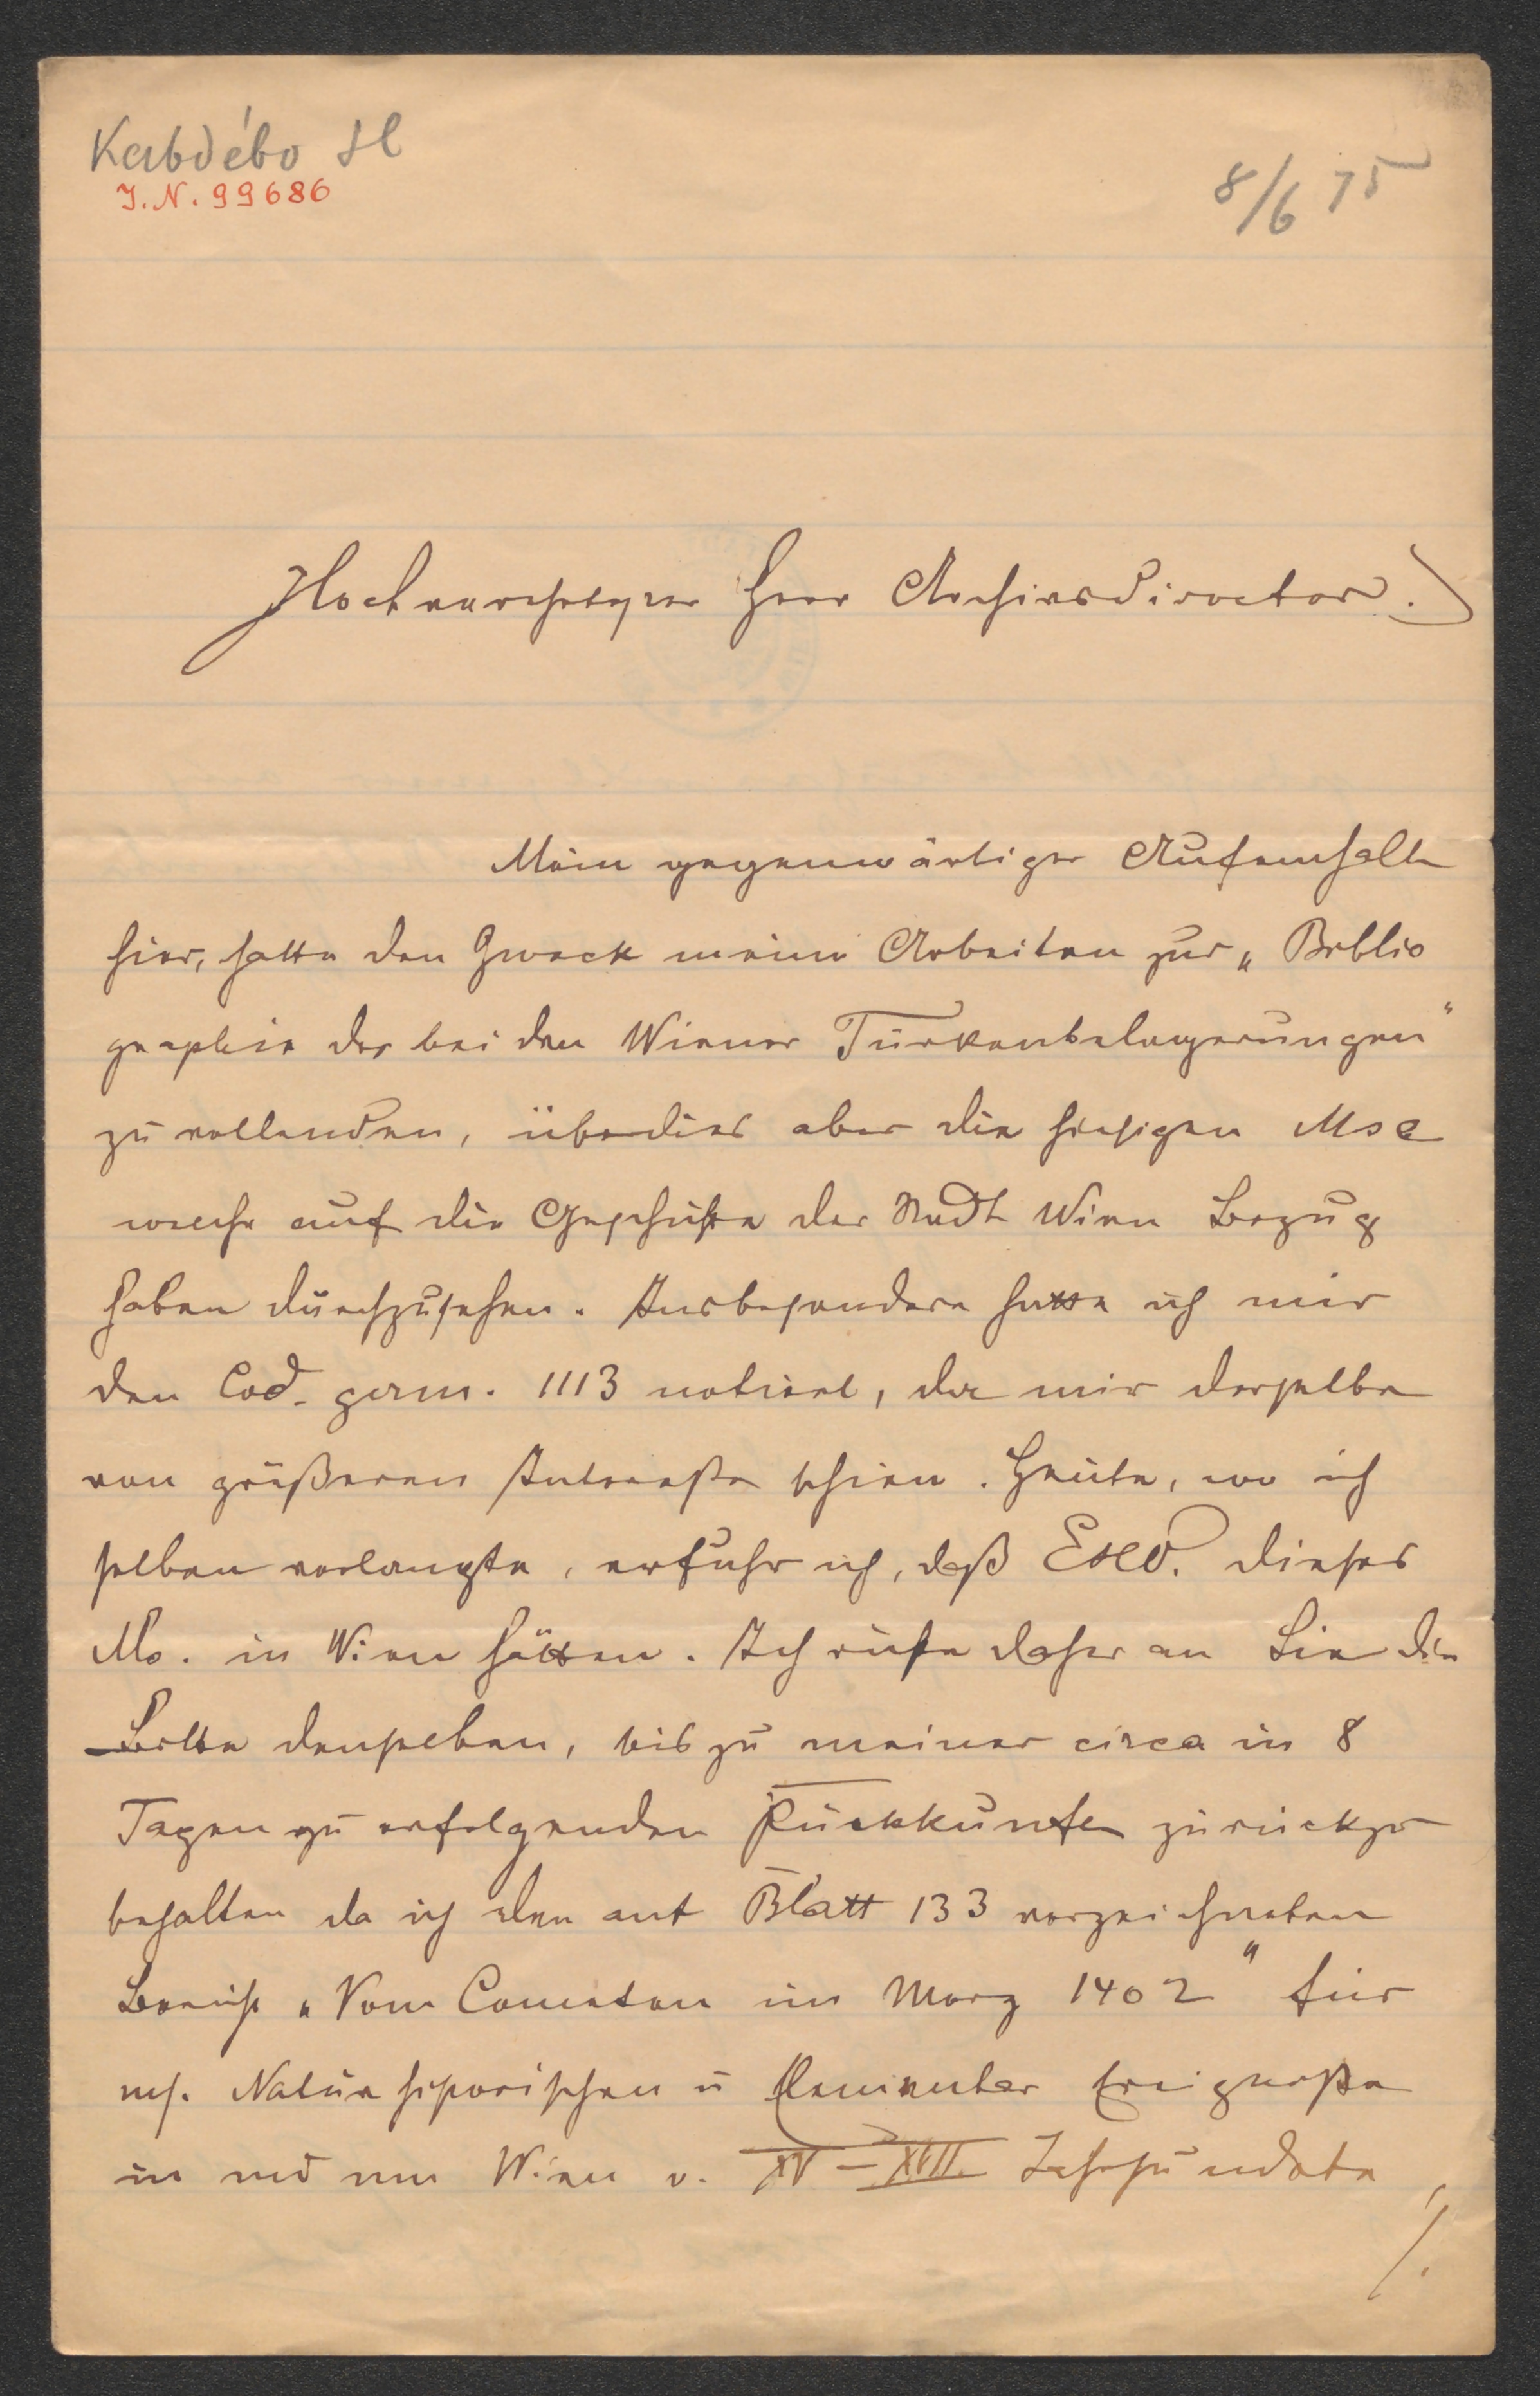 Kabdébo H
I.N. 99686
8/6 75
Hochverehrtester Herr Archivsdirector.
Mein gegenwärtiger Aufenthalt
hier, hatte den Zweck meine Arbeiten zur „Biblio
graphie der beiden Wiener Türkenbelagerungen“
zu vollenden, überdies aber die hiesigen Msc
welche auf die Geschichte der Stadt Wien Bezug
haben durchzusehen. Insbesondere hatte ich mir
den Cod. germ. 1113 notirt, da mir derselbe
von größeren Interesse schien. Heute, wo ich
selben verlangte, erfuhr ich, daß dieses
Ms. in Wien hätten. Ich richte daher an Sie die
Bitte denselben, bis zu meiner circa in 8
Tagen zu erfolgenden Rückkunft zurückzu
behalten da ich den auf Blatt 133 verzeichneten
Bericht „Vom Cometen im Marz 1402“ für
Naturhistorischen u Elementar Ereignisse
in und um Wien v. XV – XVII. Jahrhunderte
/.